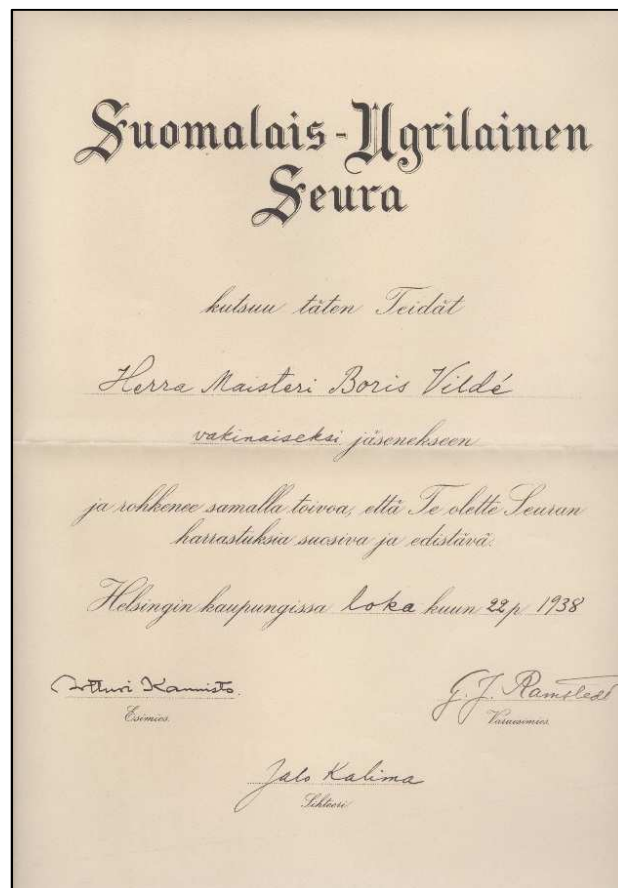 Suomalais-Ugrilainen
Seura
kutsuu täten Teidät
Herra Maisteri Boris Vildé
vakinaiseksi jäsenekseen
ja rohkenee samalla toivoa, että Te olette Seuran
harrastuksia suosiva ja edistävä.
Helsingin kaupungissa loka kuun 22 p. 1938
Artturi Kannisto. G. J. Ramstedt
Esimies. Varaesimies.
Jalo Kalima
Sihteeri.